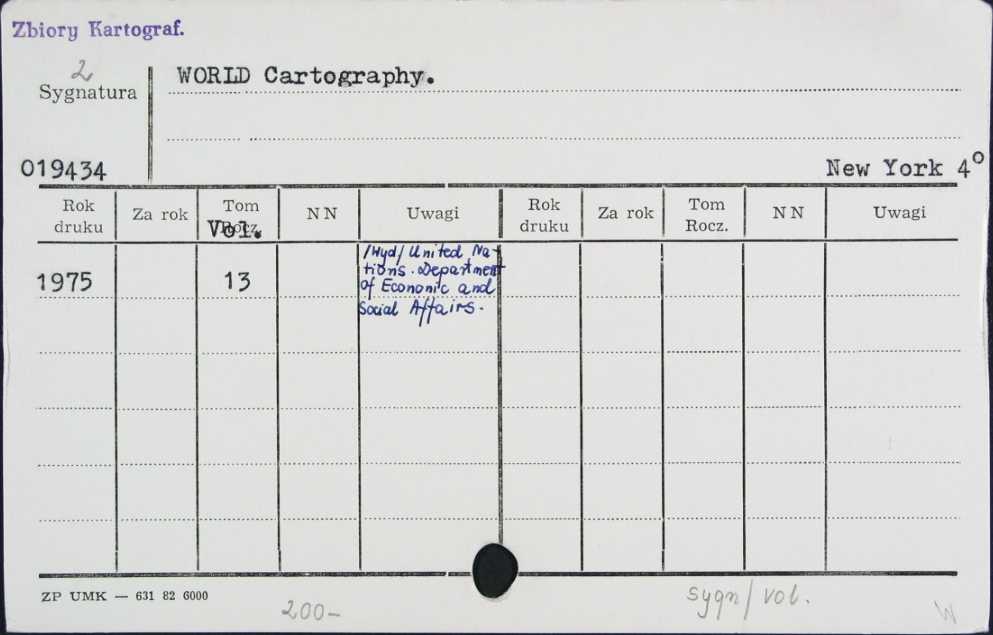 Zbiory Kartograf.
2
Sygnatura
WORLD Cartography.
019434
New York 4°
Rok druku Za rok Tom Rocz. NN Uwagi Rok druku Za rok Tom Rocz. NN Uwagi
Vol.
1975 13 /Wyd/ United Na-
tions. Department
of Economic and
Social Affairs.
ZP UMK — 631 82 6000
200-
sygn/vol.
W